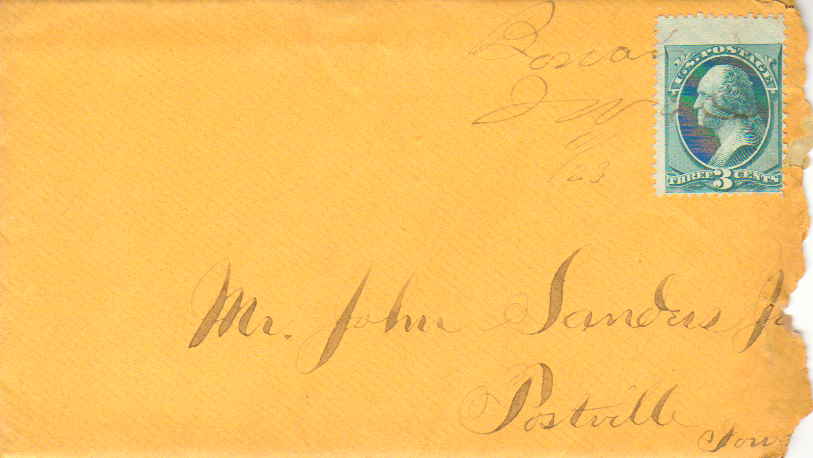 U.S. POSTAGE
THREE 3 CENTS
23
Mr. John Sanders Jr
Postville
Iow